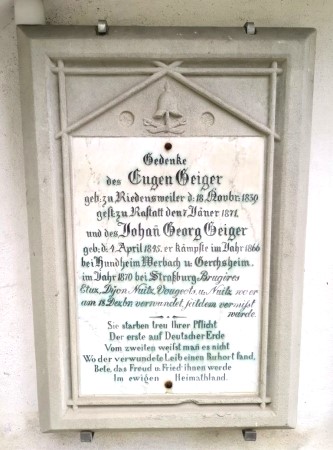 Gedenke
des Eugen Geiger
geb. zu Riedensweiler d. 18. Novbr. 1839
gest. zu Rastatt den 7 Jäner 1871.
und des Johañ Georg Geiger
geb. d. 4. April 1845. er kämpfte im Jahr 1866
bei Hundheim Werbach u. Gerchsheim.
im Jahr 1870 bei Straßburg Brugères
Etuz, Dijon Nuitz, Vougeots, u. Nuitz, wo er
am 18. Dezbr. verwundet, seitdem vermißt
wurde.
Sie starben treu Ihrer Pflicht
Der erste auf Deutscher Erde
Vom zweiten weißt man es nicht
Wo der verwundete Leib einen Ruhort fand,
Bete, das Freud u. Fried ihnen werde
Im ewigen Heimathland.